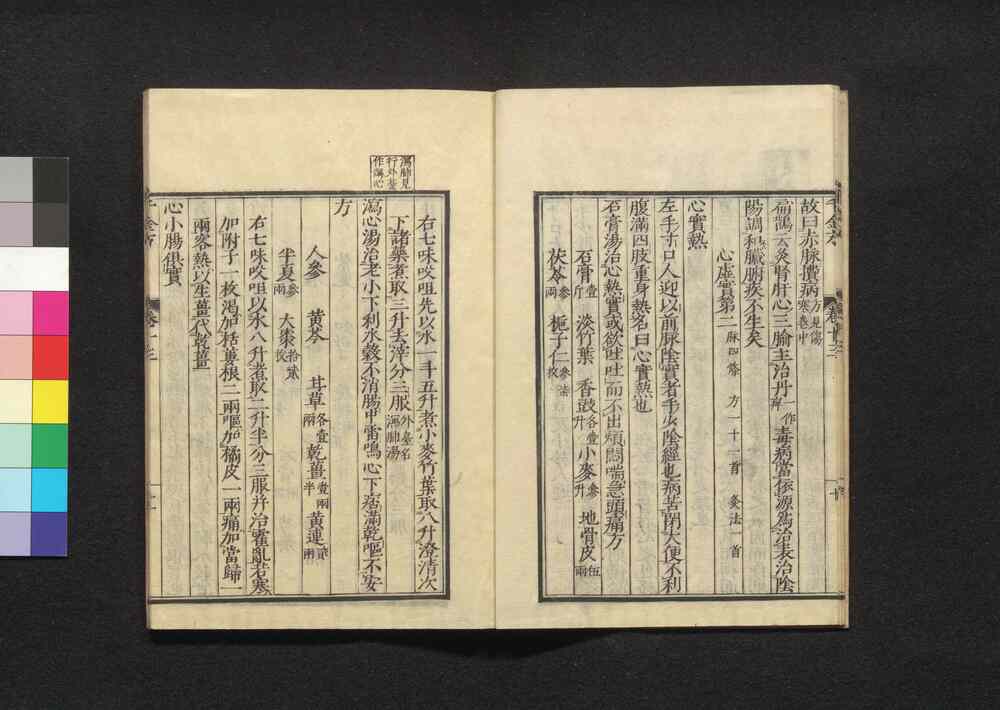 故曰赤脉攢病方見傷寒卷中
扁鵲云灸腎肝心三腧主治丹一作痺毒病當依源爲治表治陰
陽調和臟腑疾不生矣
心虛實第二脉四條 方一十一首 灸法一首
心實熱
左手寸口人迎以前脉陰實者手少陰經也病苦閉大便不利
腹滿四肢重身熱名曰心實熱也
石膏湯治心熱實或欲吐吐而不出煩悶喘急頭痛方
石膏壹斤 淡竹葉 香豉各壹升 小麥參升 地骨皮伍兩
茯苓參兩 梔子仁參柒枚
右七味㕮咀先以水一斗五升煮小麥竹葉取八升澄清次
下諸藥煮取三升去滓分三服外臺名瀉肺湯
瀉肺見行外臺作瀉心
瀉心湯治老小下利水穀不消腸中雷鳴心下痞滿乾嘔不安
方
人參 黄芩 甘草各壹兩 乾薑壹兩半 黄連貳兩
半夏參兩 大棗拾貳枚
右七味㕮咀以水八升煮取二升半分三服并治霍亂若寒
加附子一枚渴加栝蔞根二兩嘔加橘皮一兩痛加當歸一
兩客熱以生薑代乾薑
心小腸俱實
千金方 卷十三 十
千金方 卷十三 十一